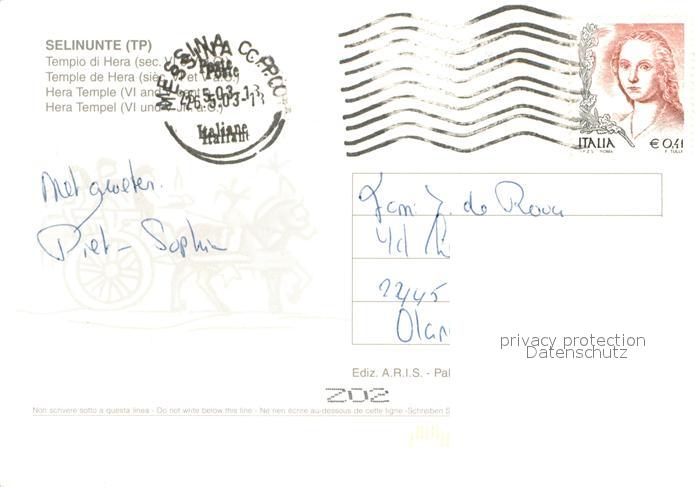 SELINUNTE (TP)
Tempio di Hera (sec.
Temple de Hera (siéc. VI et V a.C.)
Hera Temple (VI and
Hera Tempel (VI und V Jh. a.C.)
MESSINA
Poste
26.5.03-13
Italiane
ITALIA
€ 0,41
I.P.Z.S. ROMA
F. TULLI
Met groeten.
Piet - Sophia
Fam. J. de
2245
Olan
privacy protection
Datenschutz
Ediz. A.R.I.S. - Pal
202
Non scrivere sotto a questa linea - Do not write below this line - Ne rien écrire au-dessous de cette ligne -Schreiben S